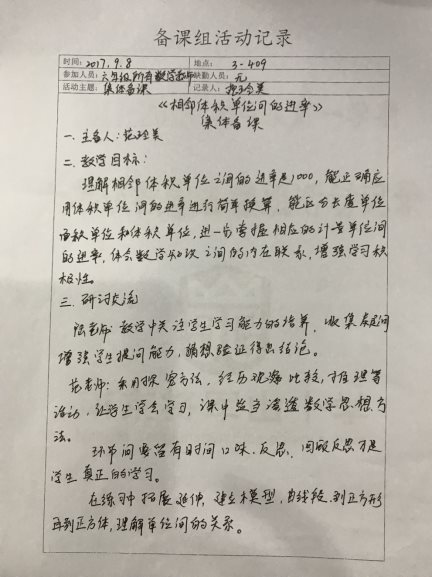 备课组活动记录
时间: 2017.9.8 地点: 3-409
参加人员: 六年级所有数学教师 缺勤人员: 无
活动主题: 集体备课 记录人:
《相邻体积单位间的进率》
集体备课
一、主备人:
二、教学目标:
理解相邻体积单位之间的进率是1000,能正确应
用体积单位间的进率进行简单换算,能区分长度单位
面积单位和体积单位,进一步掌握相应的计量单位间
的进率,体会数学知识之间的内在联系,增强学习积
极性。
三、研讨交流
陆老师:教学中关注学生学习能力的培养,收集
增强学生提问能力,猜想验证得出结论。
范老师:采用探究方法,经历观察比较,推理等
活动,让学生学会学习,课中应当渗透数学思想方
法。
环节间要留有时间回味,反思,回顾反思才是
学生真正的学习。
在练习中拓展延伸,建立模型,由线段,到正方形
再到正方体,理解单位间的关系。